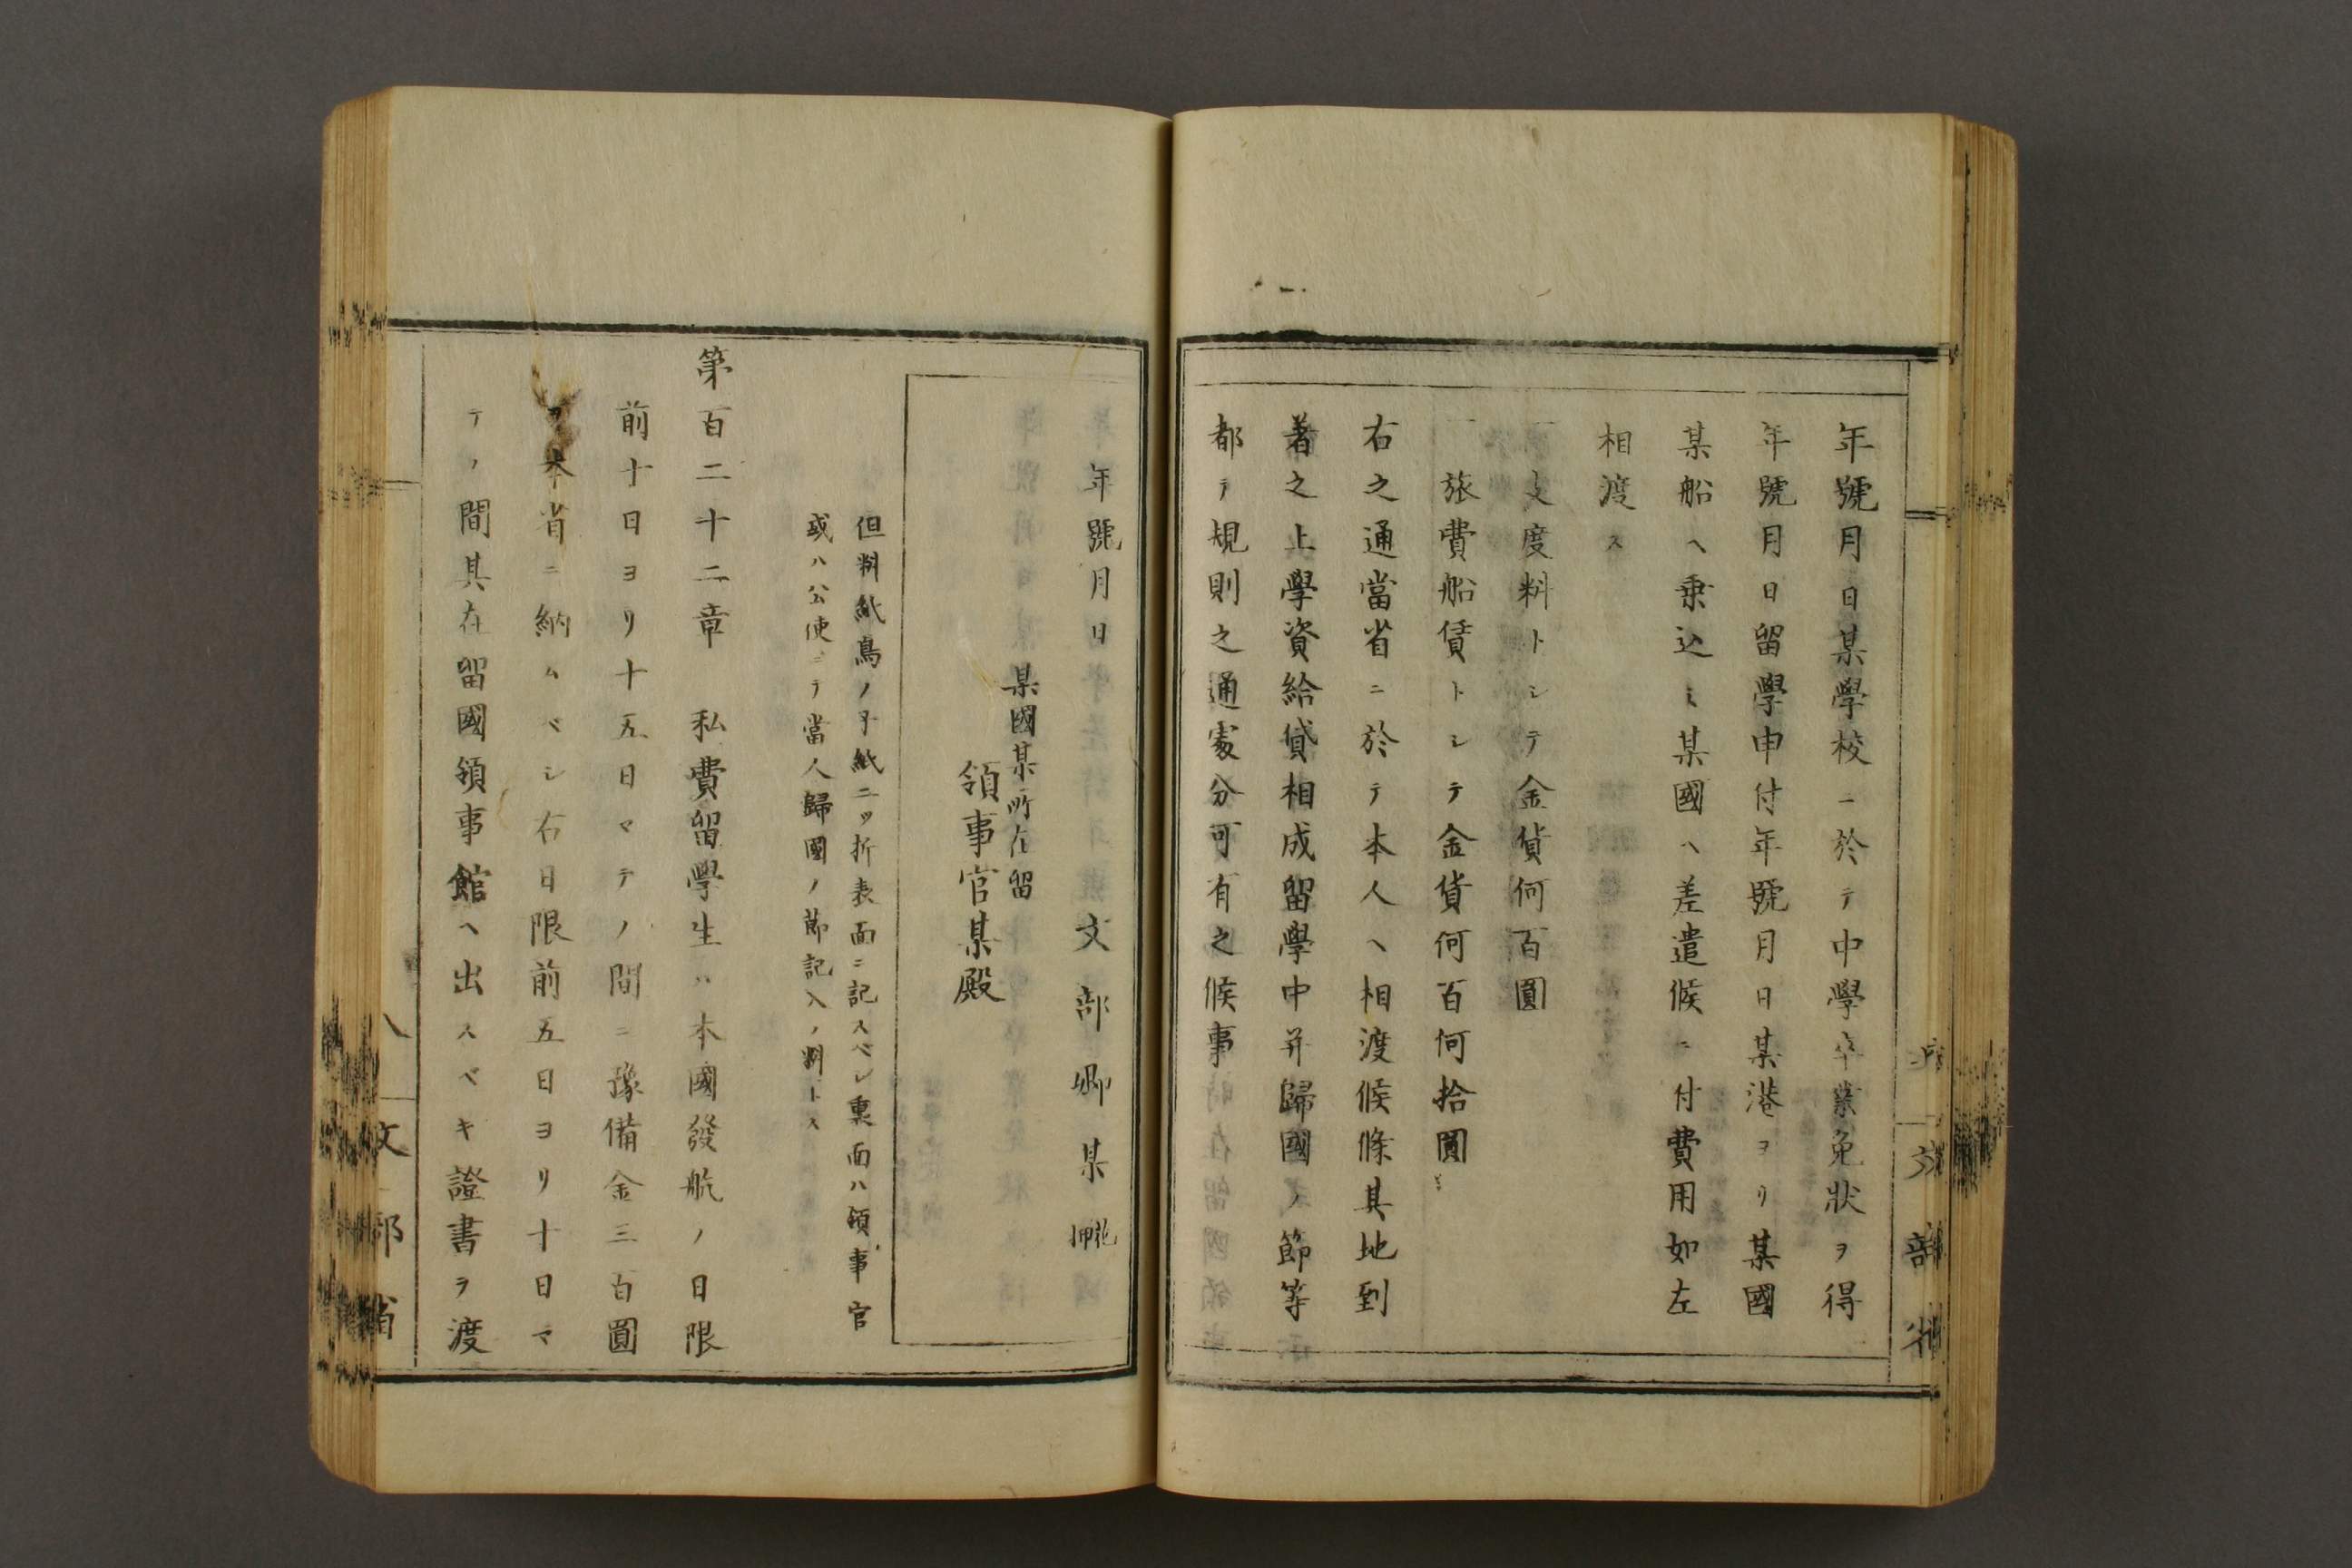 年號月日某學校ニ於テ中學卒業免狀ヲ得
年號月日留學申付年號月日某港ヨリ某國
某船ヘ乗込ミ某國ヘ差遣候ニ付費用如左
相渡ス
一支度料トシテ金貨何百圓
一旅費船賃トシテ金貨何百何拾圓
右之通當省ニ於テ本人ヘ相渡候條其地到
著之上學資給貸相成留學中并歸國ノ節等
都テ規則之通處分可有之候事
文部省
年號月日
文部卿某 花押
某國某所在留
領事官某殿
但料紙鳥ノ子紙二ツ折表面ニ記スベシ裏面ハ領事官
或ハ公使ニテ當人歸國ノ節記入ノ料トス
第百二十二章 私費留學生ハ本國發航ノ日限
前十日ヨリ十五日マテノ間ニ豫備金三百圓
ヲ本省ニ納ムベシ右日限前五日ヨリ十日マ
テノ間其在留國領事館ヘ出スベキ證書ヲ渡
八
文部省